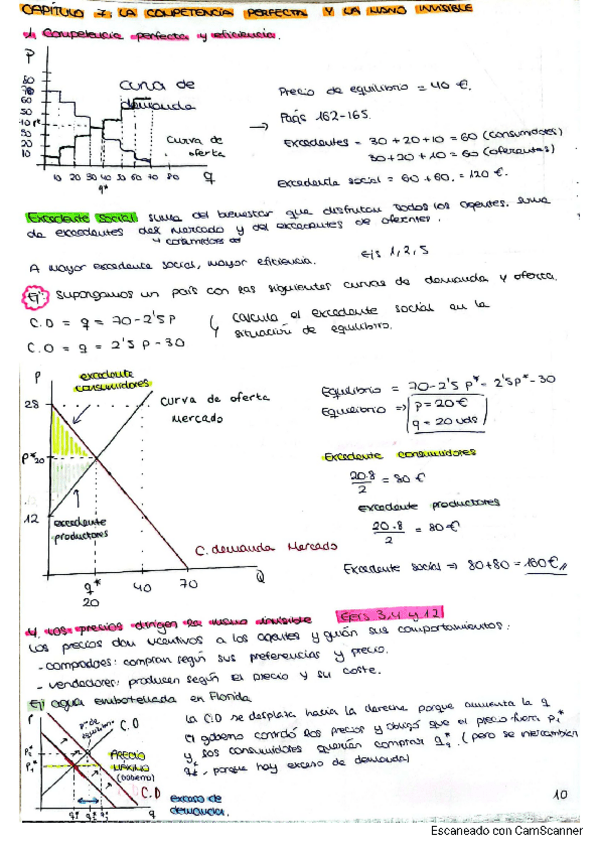 CAPÍTULO 7: LA COMPETENCIA PERFECTA Y LA MANO INVISIBLE
1) Competencia perfecta y eficiencia.
P
80
70
60
50
40 P*
30
20
10
curva de demanda
curva de oferta
10 20 30 40 50 60 70 80 q
q*
→
Precio de equilibrio = 40 €.
Págs 162-165.
Excedentes = 30+20+10 = 60 (consumidores)
30+20+10 = 60 (oferentes)
Excedente social = 60+60. = 120 €.
Excedente social: suma del bienestar que disfrutan todos los agentes, suma
de excedentes del mercado y del excedentes de oferentes.
y consumidores
A mayor excedente social, mayor eficiencia.
Ejs 1, 2, 5
Ej: Supongamos un país con las siguientes curvas de demanda y oferta.
C.D = q = 70-2'5P
C.O = q = 2'5 P - 30
Calcula el excedente social en la
situación de equilibrio.
P
excedente
consumidores
28
P* 20
12
curva de oferta
Mercado
excedente
productores
C. demanda Mercado
q*
20
40
70
Q
Equilibrio = 70-2'5 P* = 2'5P* - 30
Equilibrio => p = 20€
q = 20 uds
Excedente consumidores
20·8
2
= 80 €
excedente productores
20·8
2
= 80€
Excedente social => 80+80 = 160€
Los precios dirigen la mano invisible
Ejers 3, 4 y 12
Los precios dan incentivos a los agentes y guían sus comportamientos:
- compradores: compran según sus preferencias y precio.
- vendedores: producen según el precio y su coste.
Ej agua embotellada en Florida
P
C.O
PRECIO
MÁXIMO
(Gobierno)
C.D
q
exceso de
demanda.
La C.D se desplaza hacia la derecha porque aumenta la q
El gobierno controló los precios y obligó que el precio fuera P₁*
y los consumidores querían comprar (pero se intercambian
porque hay exceso de demanda)
10
Escaneado con CamScanner